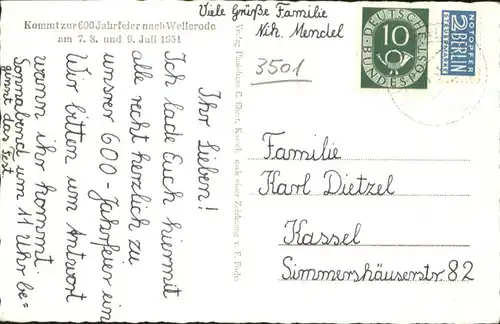 Kommt zur 600 Jahrfeier nach Wellerode
am 7. 8. und 9. Juli 1951
Viele Grüße Familie
Nik. Mendel
3501
Ihr Lieben!
Ich lade Euch hiermit
alle recht herzlich zu
unsrer 600-Jahrfeier ein
Wir bitten um Antwort
wann ihr kommt.
Sonnabend um 11 Uhr be=
ginnt das Fest
Verlag
Kassel, nach einer Zeichnung v. F.
DEUTSCHE
BUNDESPOST
10
NOTOPFER
2 BERLIN
STEUERMARKE
Familie
Karl Dietzel
Kassel
Simmershäuserstr 82